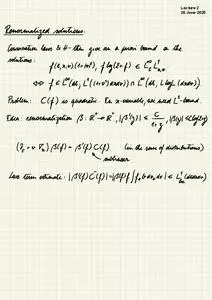 Lecture 2
26 June 2020
Renormalized solutions:
Conservation laws & H-thm give an a priori bound on the
solutions:
f(t,x,v)(1+|v|²), f log(2+f) ∈ L^∞_t L^1_{x,v}
⟺ f ∈ L^∞(dt; L^1((1+v²)dxdv)) ∩ L^∞(dt; L log L(dxdv))
Problem: C(f) is quadratic. In x-variable, we need L²-bound.
Idea: renormalization β: ℝ⁺→ℝ⁺, |β'(y)| ≤ C/(1+y),
(∂_t + v·∇_x) β(f) = β'(f) C(f) (in the sense of distributions)
sublinear
Loss term estimate: |β'(f) C⁻(f)| = |β'(f) f ∫ f_* b dv_* dσ| ∈